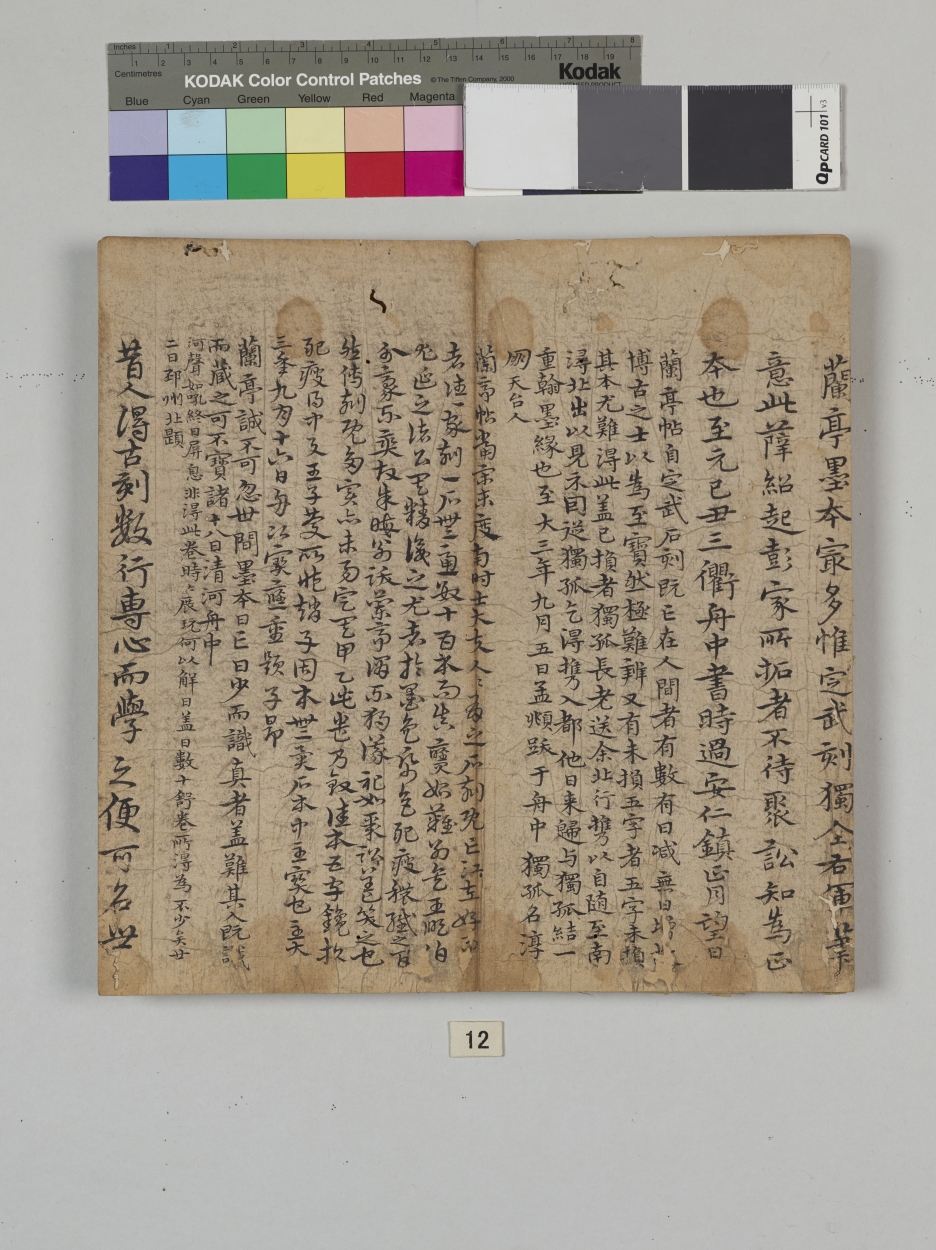 Inches 1 2 3 4 5 6 7 8
1 2 3 4 5 6 7 8 9 10 11 12 13 14 15 16 17 18 19
Centimetres
KODAK Color Control Patches © The Tiffen Company, 2000
Kodak
LICENSED PRODUCT
Blue Cyan Green Yellow Red Magenta
QPCARD 101 v3
蘭亭墨本㝡多惟㝎武刻獨全右軍筆
意此薛紹起彭家所拓者不待聚訟知為正
本也至元己丑三衢舟中書時過安仁鎮正月望日
蘭亭帖自定武石刻既亡在人間者有數有日减無日
博古之士以為至寶然極難辨又有未損五字者五字未損
其本尤難得此盖已損者獨孤長老送余北行㩗以自随至南
潯北出以見示因從獨孤乞得㩗入都他日来歸与獨孤結一
重翰墨緣也至大三年九月五日孟頫跋于舟中獨孤名淳
朋天台人
蘭亭帖當宋未度南時士大夫人人有之石刻既亡江左好
者往往家刻一石無慮數十百本而真贋始難別矣王順伯
尤延之諸公其精識之尤者於墨色紙色肥瘦穠纖之間
分豪不爽故朱晦翁跋蘭亭謂不獨議禮如聚訟盖笑之也
然傳刻既多實亦未易定其甲乙此卷乃致佳本五字鑱損
肥瘦得中与王子慶所藏趙子固本無異石本中至寶也至大
三年九月十六日舟次寶應重題子昂
蘭亭誠不可忽世間墨本日亡日少而識真者盖難其人既識
而藏之可不寶諸十八日清河舟中
河聲如吼終日屏息非得此卷時時展玩何以解日盖日數十舒卷所得為不少矣廿
二日邳州北題
昔人得古刻數行專心而學之便可名世
12